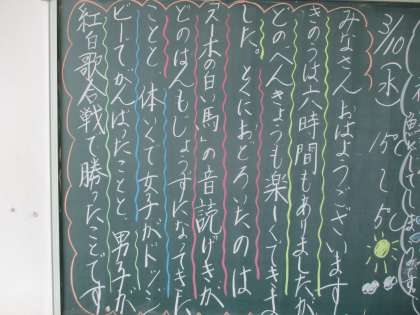 3/10(水)
みなさん おはようございます
きのうは六時間もありましたが
どのべんきょうも楽しくできま
した。とくにおどろいたのは
「スーホの白い馬」の音読げきが
どのはんもじょうずになってきた
ことと 体いくで女子がドッジ
ビーでがんばったことと、男子が
紅白歌合戦で勝ったことです